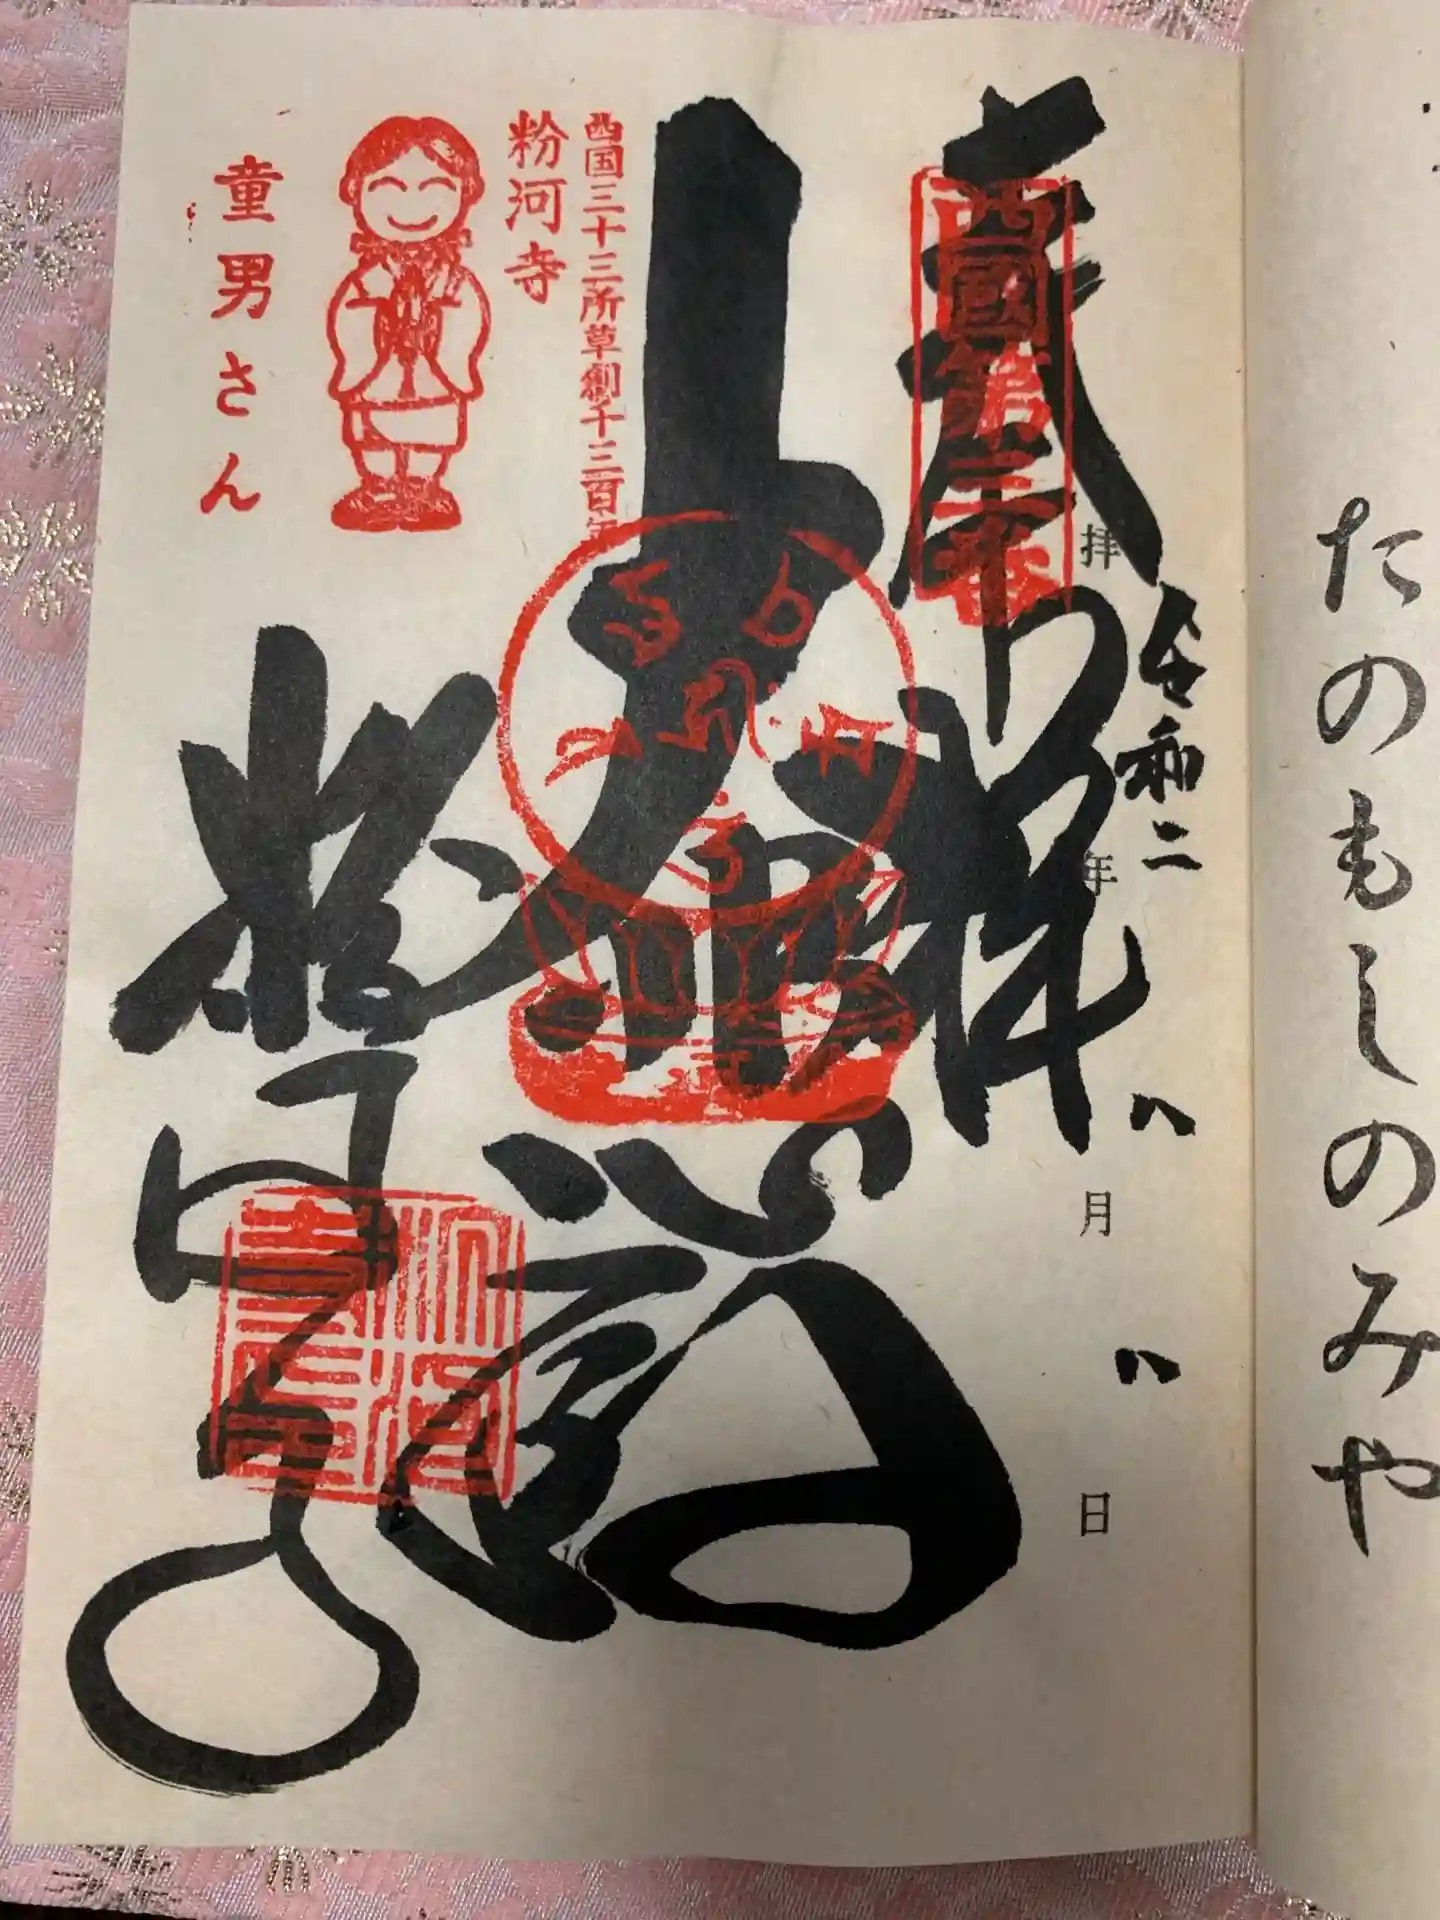 たのもしのみや
拝
令和二年八月八日
奉拝
西國第三番
大悲殿
西国三十三所草創千三百年
粉河寺
童男さん
粉河寺
粉河寺印